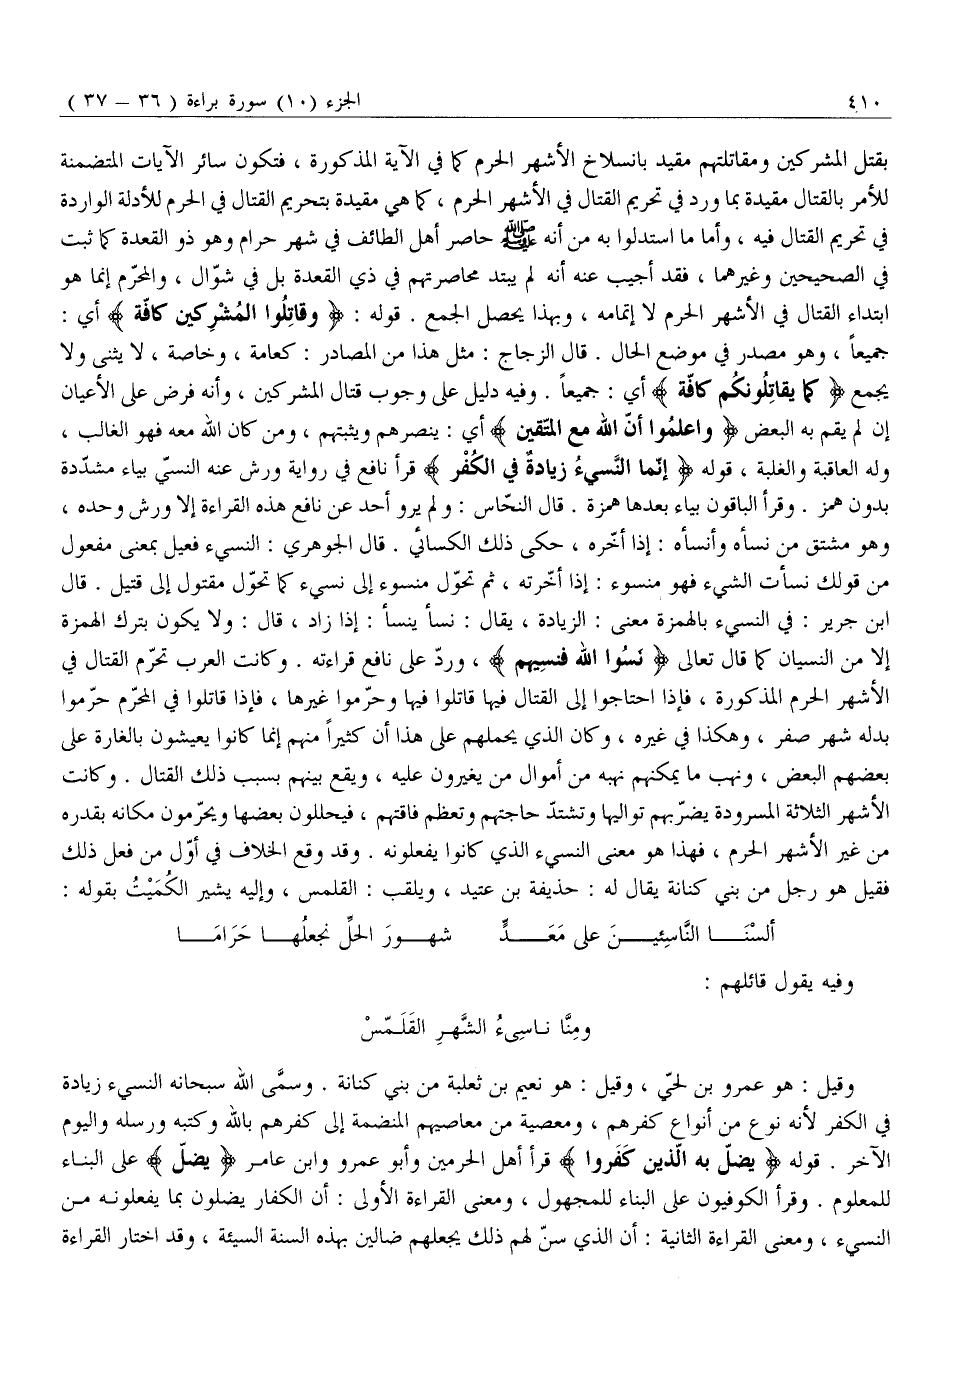 ٤١٠
الجزء (١٠) سورة براءة ( ٣٦ – ٣٧ )
بقتل المشركين ومقاتلتهم مقيد بانسلاخ الأشهر الحرم كما في الآية المذكورة ، فتكون سائر الآيات المتضمنة
للأمر بالقتال مقيدة بما ورد في تحريم القتال في الأشهر الحرم ، كما هي مقيدة بتحريم القتال في الحرم للأدلة الواردة
في تحريم القتال فيه ، وأما ما استدلوا به من أنه ﷺ حاصر أهل الطائف في شهر حرام وهو ذو القعدة كما ثبت
في الصحيحين وغيرهما ، فقد أجيب عنه أنه لم يبتد محاصرتهم في ذي القعدة بل في شوّال ، والمحرّم إنما هو
ابتداء القتال في الأشهر الحرم لا إتمامه ، وبهذا يحصل الجمع . قوله : ﴿ وقاتِلُوا المُشْرِكين كافّة ﴾ أي :
جميعاً ، وهو مصدر في موضع الحال . قال الزجاج : مثل هذا من المصادر : كعامة ، وخاصة ، لا يثنى ولا
يجمع ﴿ كما يقاتِلُونكُم كافّة ﴾ أي : جميعاً . وفيه دليل على وجوب قتال المشركين ، وأنه فرض على الأعيان
إن لم يقم به البعض ﴿ واعلمُوا أنّ الله مع المتّقين ﴾ أي : ينصرهم ويثبتهم ، ومن كان الله معه فهو الغالب ،
وله العاقبة والغلبة ، قوله ﴿ إنّما النَّسيءُ زيادةٌ في الكُفْر ﴾ قرأ نافع في رواية ورش عنه النسيّ بياء مشدّدة
بدون همز . وقرأ الباقون بياء بعدها همزة . قال النحّاس : ولم يرو أحد عن نافع هذه القراءة إلا ورش وحده ،
وهو مشتق من نسأه وأنسأه : إذا أخّره ، حكى ذلك الكسائي . قال الجوهري : النسيء فعيل بمعنى مفعول
من قولك نسأت الشيء فهو منسوء : إذا أخّرته ، ثم تحوّل منسوء إلى نسيء كما تحوّل مقتول إلى قتيل . قال
ابن جرير : في النسيء بالهمزة معنى : الزيادة ، يقال : نسأ ينسأ : إذا زاد ، قال : ولا يكون بترك الهمزة
إلا من النسيان كما قال تعالى ﴿ نَسُوا الله فنسِيهم ﴾ ، وردّ على نافع قراءته . وكانت العرب تحرّم القتال في
الأشهر الحرم المذكورة ، فإذا احتاجوا إلى القتال فيها قاتلوا فيها وحرّموا غيرها ، فإذا قاتلوا في المحرّم حرّموا
بدله شهر صفر ، وهكذا في غيره ، وكان الذي يحملهم على هذا أن كثيراً منهم إنما كانوا يعيشون بالغارة على
بعضهم البعض ، ونهب ما يمكنهم نهبه من أموال من يغيرون عليه ، ويقع بينهم بسبب ذلك القتال . وكانت
الأشهر الثلاثة المسرودة يضرّبهم تواليها وتشتدّ حاجتهم وتعظم فاقتهم ، فيحللون بعضها ويحرّمون مكانه بقدره
من غير الأشهر الحرم ، فهذا هو معنى النسيء الذي كانوا يفعلونه . وقد وقع الخلاف في أوّل من فعل ذلك
فقيل هو رجل من بني كنانة يقال له : حذيفة بن عتيد ، ويلقب : القلمس ، وإليه يشير الكُمَيْتُ بقوله :
ألسْنَا النَّاسِئِينَ على مَعَدٍّ شهورَ الحلِّ نجعلُها حَرَامَا
وفيه يقول قائلهم :
ومِنَّا ناسِيءُ الشَّهرِ القَلَمّسْ
وقيل : هو عمرو بن لحيّ ، وقيل : هو نعيم بن ثعلبة من بني كنانة . وسمَّى الله سبحانه النسيء زيادة
في الكفر لأنه نوع من أنواع كفرهم ، ومعصية من معاصيهم المنضمة إلى كفرهم بالله وكتبه ورسله واليوم
الآخر . قوله ﴿ يضلّ به الّذين كَفَروا ﴾ قرأ أهل الحرمين وأبو عمرو وابن عامر ﴿ يضلّ ﴾ على البناء
للمعلوم . وقرأ الكوفيون على البناء للمجهول ، ومعنى القراءة الأولى : أن الكفار يضلون بما يفعلونه من
النسيء ، ومعنى القراءة الثانية : أن الذي سنّ لهم ذلك يجعلهم ضالين بهذه السنة السيئة ، وقد اختار القراءة